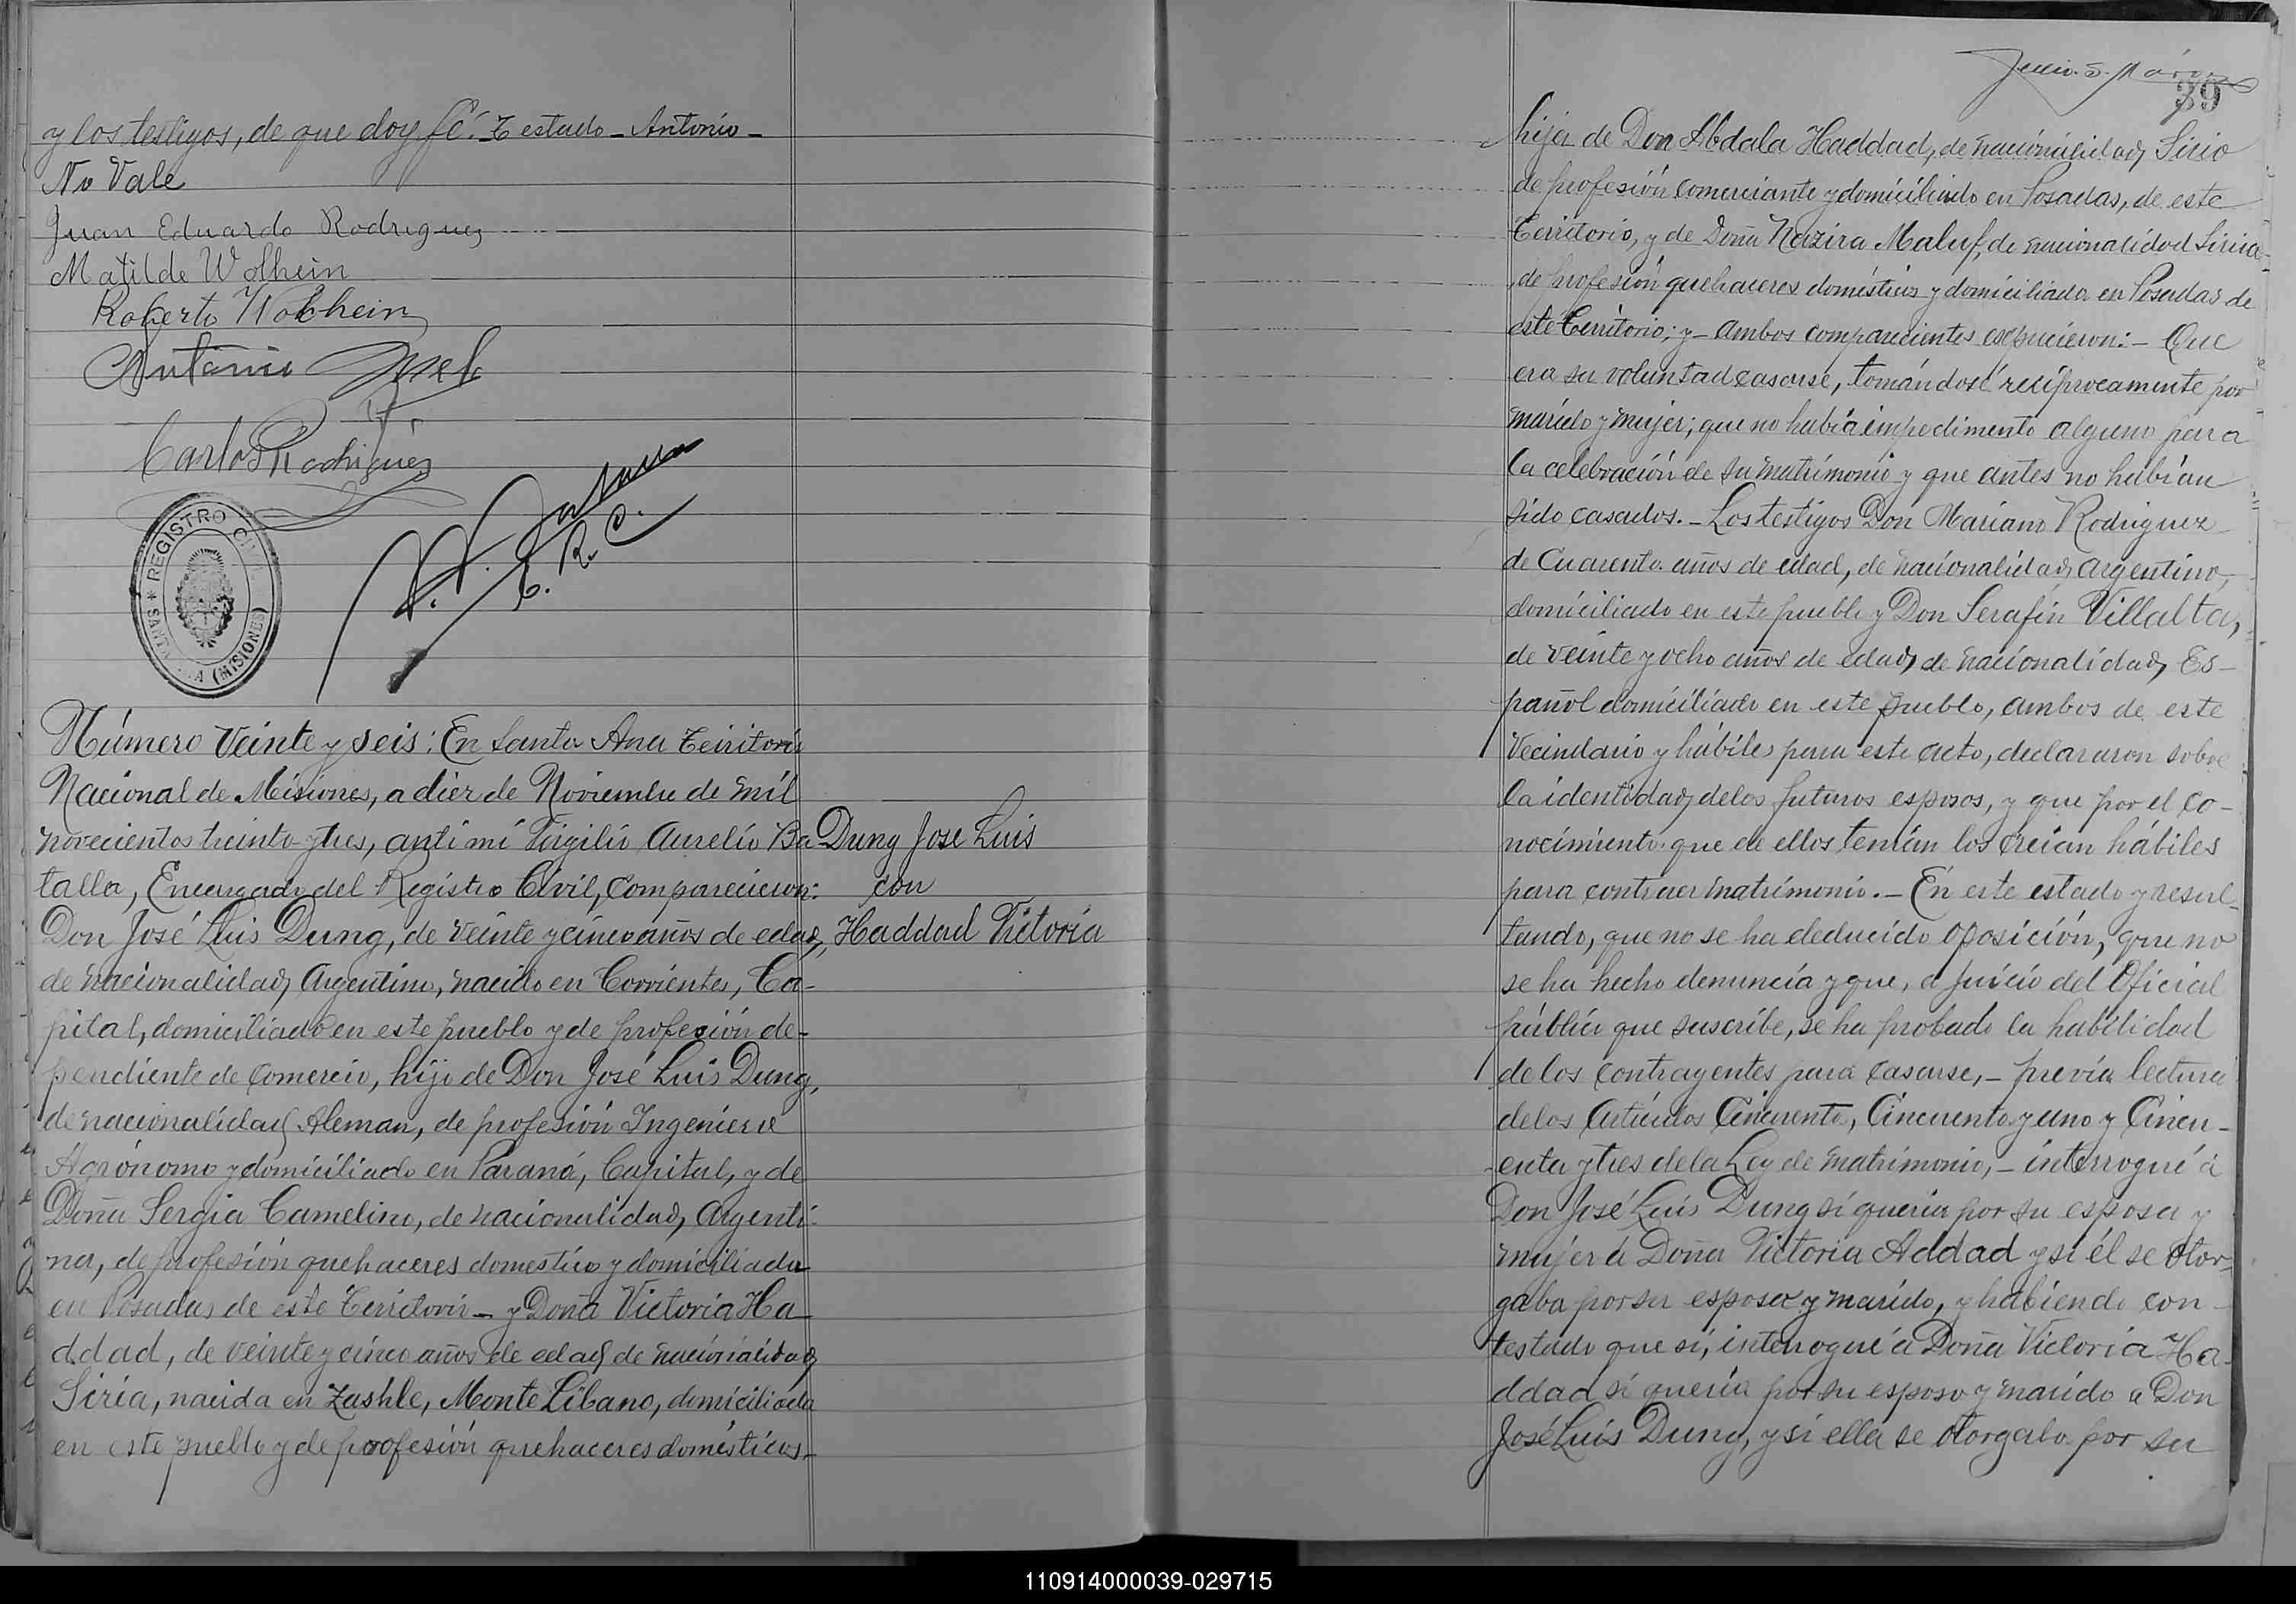 y los testigos, de que doy fé. Testado - Antonio -
No Vale
Juan Eduardo Rodriguez
Matilde Wolhein
Roberto Wolhein
Antonio
Carlos Rodriguez
E. R. C.
REGISTRO CIVIL
SANTA ANA (MISIONES)
Número Veinte y seis: En Santa Ana Territorio
Nacional de Misiones, a diez de Noviembre de mil
novecientos treinta y tres, ante mi Virgilio Aurelio Ba
talla, Encargado del Registro Civil, comparecieron:
Don José Luis Dung, de veinte y cinco años de edad,
de nacionalidad Argentino, nacido en Corrientes, Ca-
pital, domiciliado en este pueblo y de profesión de-
pendiente de comercio, hijo de Don José Luis Dung,
de nacionalidad Aleman, de profesión Ingeniero
Agrónomo y domiciliado en Paraná, Capital, y de
Doña Sergia Camelino, de nacionalidad, Argenti-
na, de profesión quehaceres domestico y domiciliada
en Posadas de este Territorio - y Doña Victoria Ha
ddad, de veinte y cinco años de edad de nacionalidad
Siria, nacida en Zashle, Monte Líbano, domiciliada
en este pueblo y de profesión quehaceres domésticos,-
Dung Jose Luis
con
Haddad Victoria
39
hija de Don Abdala Haddad, de nacionalidad Sirio
de profesión comerciante y domiciliado en Posadas, de este
Territorio, y de Doña Nazira Maluf, de nacionalidad Siria-
de profesión quehaceres domésticos y domiciliada en Posadas de
este Territorio; y - ambos comparecientes expusieron: - Que
era su voluntad casarse, tomándose recíprocamente por
marido y mujer; que no había impedimento alguno para
la celebración de su matrimonio y que antes no habían
sido casados. - Los testigos Don Mariano Rodriguez
de Cuarenta años de edad, de nacionalidad Argentino,
domiciliado en este pueblo y Don Serafín Villalta,
de veinte y ocho años de edad, de nacionalidad, Es-
pañol domiciliado en este pueblo, ambos de este
Vecindario y hábiles para este acto, declararon sobre
la identidad de los futuros esposos, y que por el co-
nocimiento que de ellos tenían los creían hábiles
para contraer matrimonio. - En este estado y resul-
tando, que no se ha deducido oposición, que no
se ha hecho denuncia y que, a juicio del Oficial
público que suscribe, se ha probado la habilidad
de los contrayentes para casarse, - previa lectura
de los Artículos Cincuenta, Cincuenta y uno y Cincu-
enta y tres de la Ley de Matrimonio, - interrogué á
Don José Luis Dung si quería por su esposa y
mujer á Doña Victoria Addad y si él se otor-
gaba por su esposo y marido, y habiendo con-
testado que sí, interrogué á Doña Victoria Ha-
ddad si quería por su esposo y marido a Don
José Luis Dung, y si ella se otorgaba por su
110914000039-029715